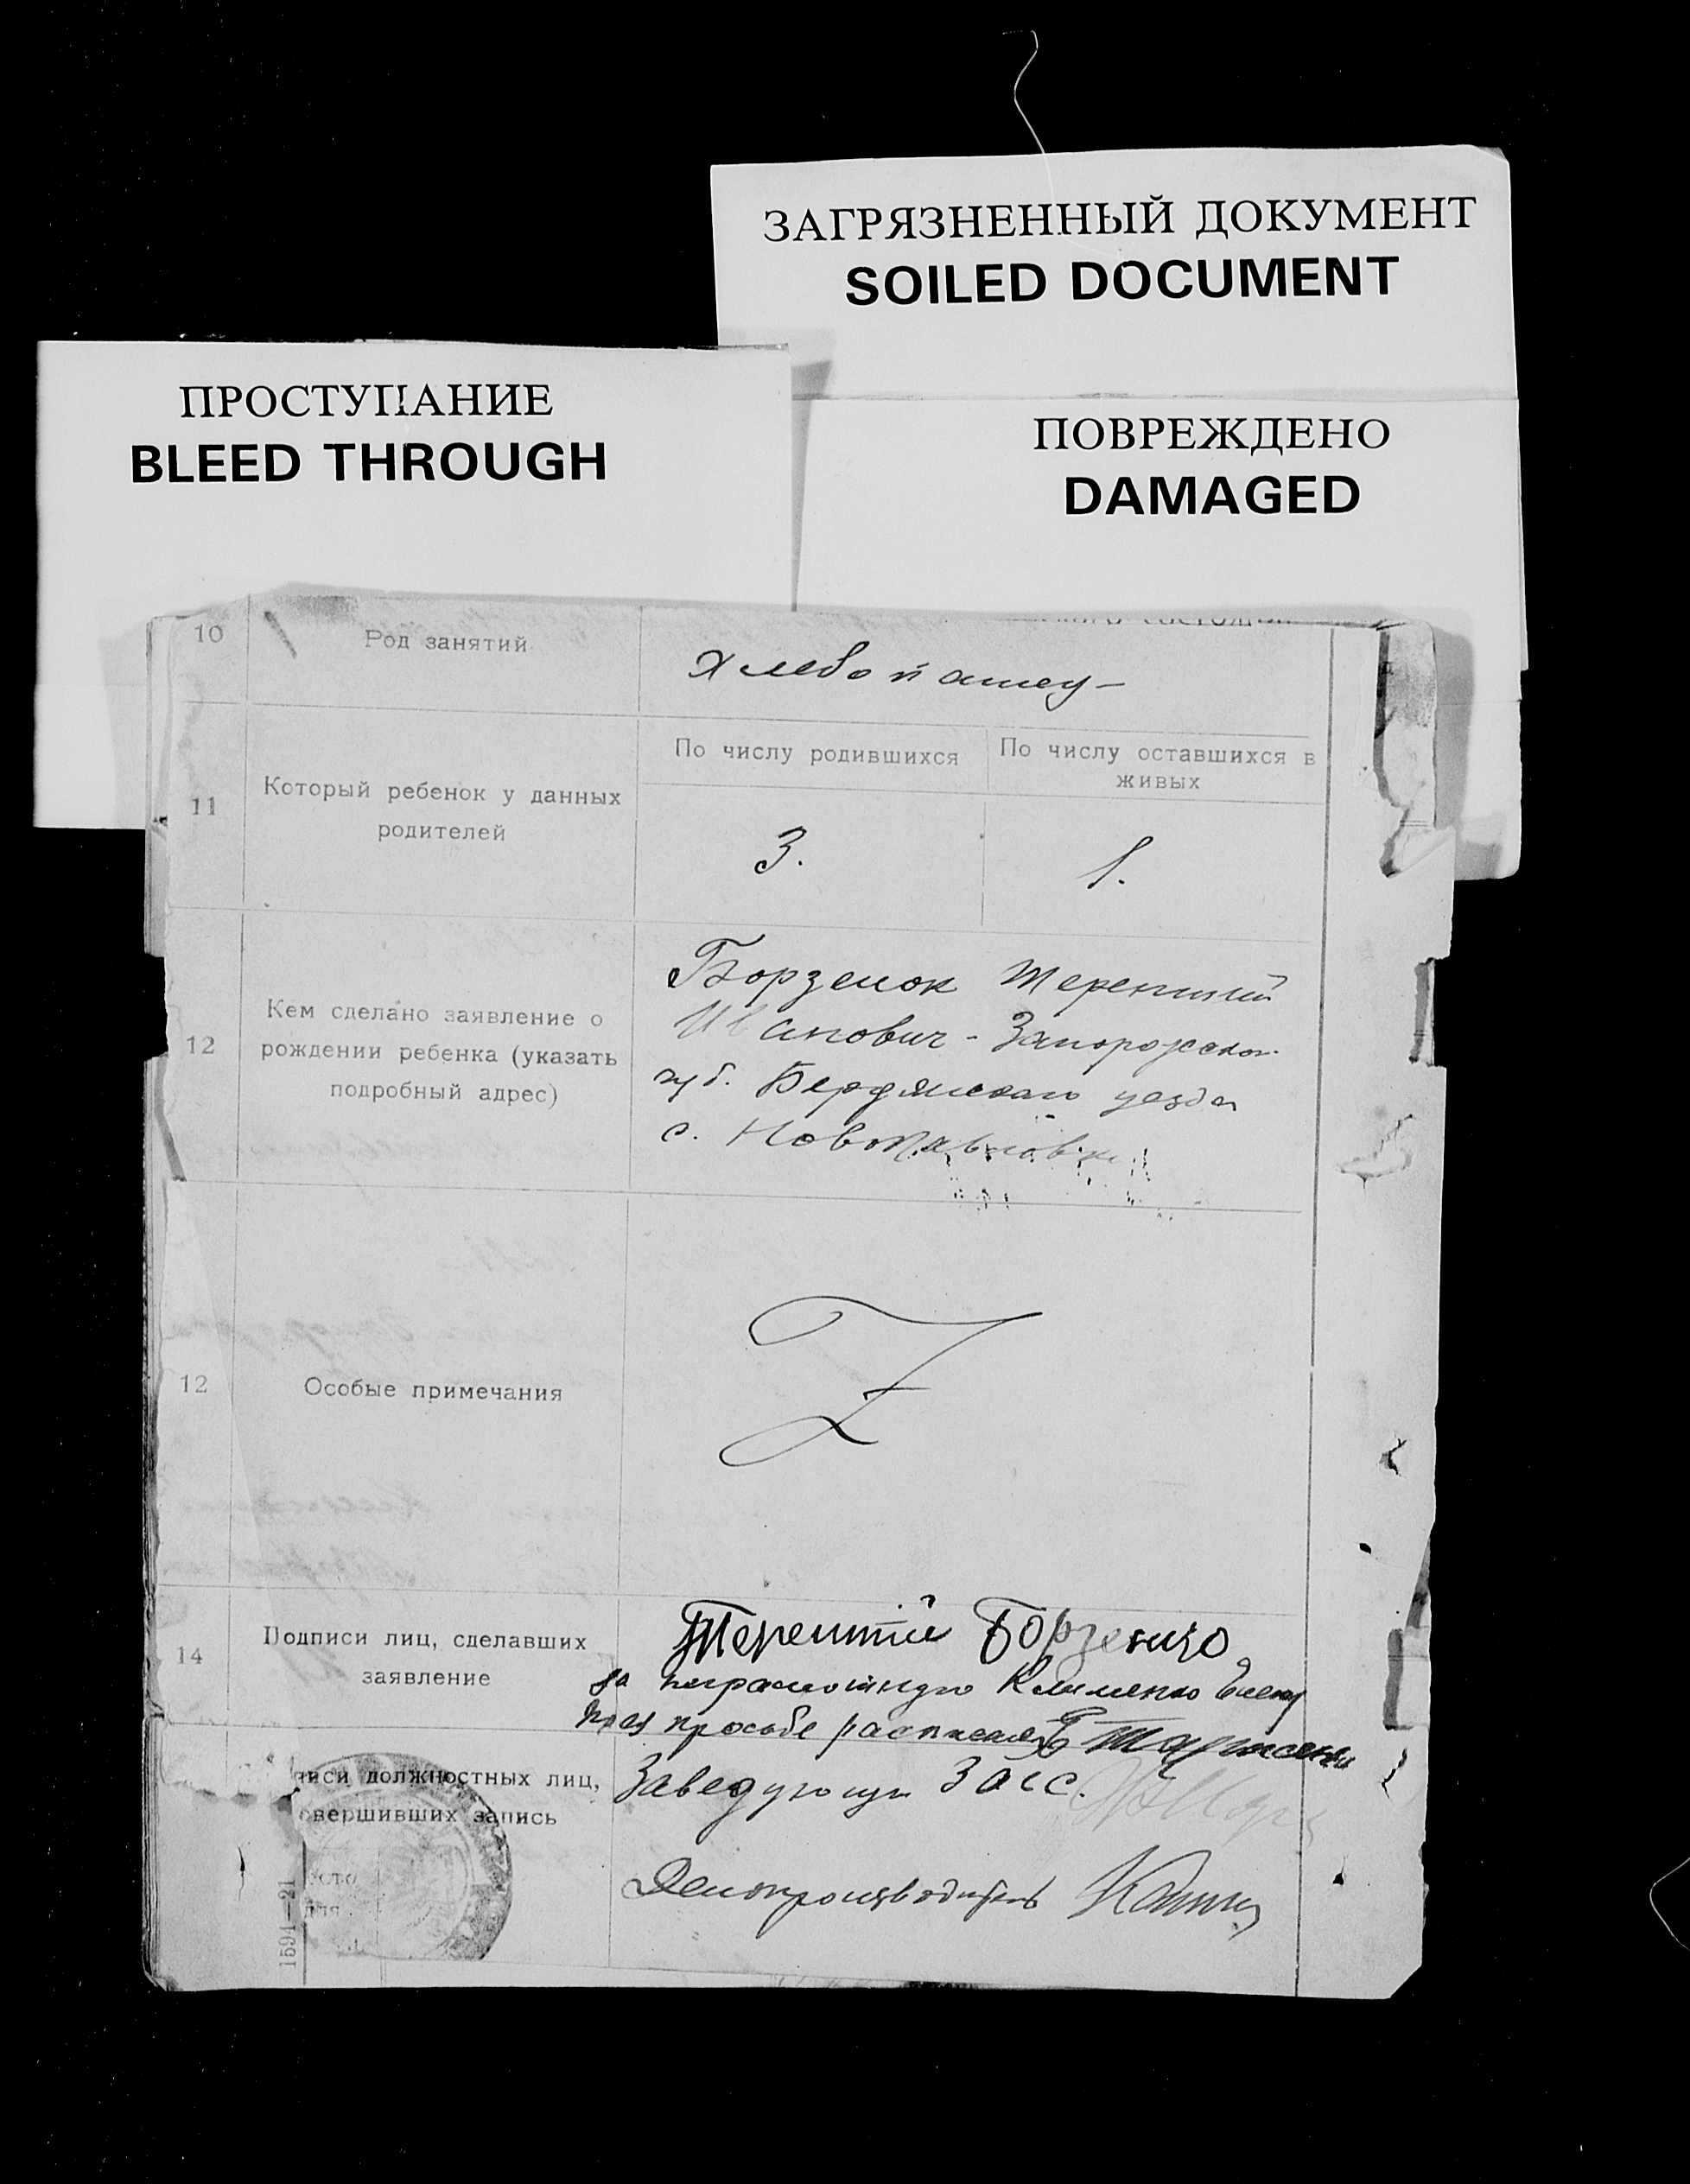 ЗАГРЯЗНЕННЫЙ ДОКУМЕНТ
SOILED DOCUMENT
ПРОСТУПАНИЕ
BLEED THROUGH
ПОВРЕЖДЕНО
DAMAGED
10
Род занятий
Хлебопашец
11
Который ребенок у данных
родителей
По числу родившихся
По числу оставшихся в
живых
3.
1.
12
Кем сделано заявление о
рождении ребенка (указать
подробный адрес)
Борзенок Терентий
Иванович - Запорожской
губ. Бердянского уезда
с. Новопавловк
12
Особые примечания
Z
14
Подписи лиц, сделавших
заявление
Терентий Борзенко
за неграмотную Клименко Елену
по ея просьбе расписался
писи должностных лиц,
овершивших запись
Заведующи Загс.
Делопроизводитель
1594—21